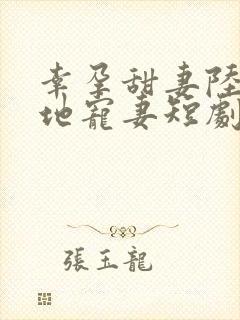 幸孕甜妻陸
地寵妻短劇
張玉龍